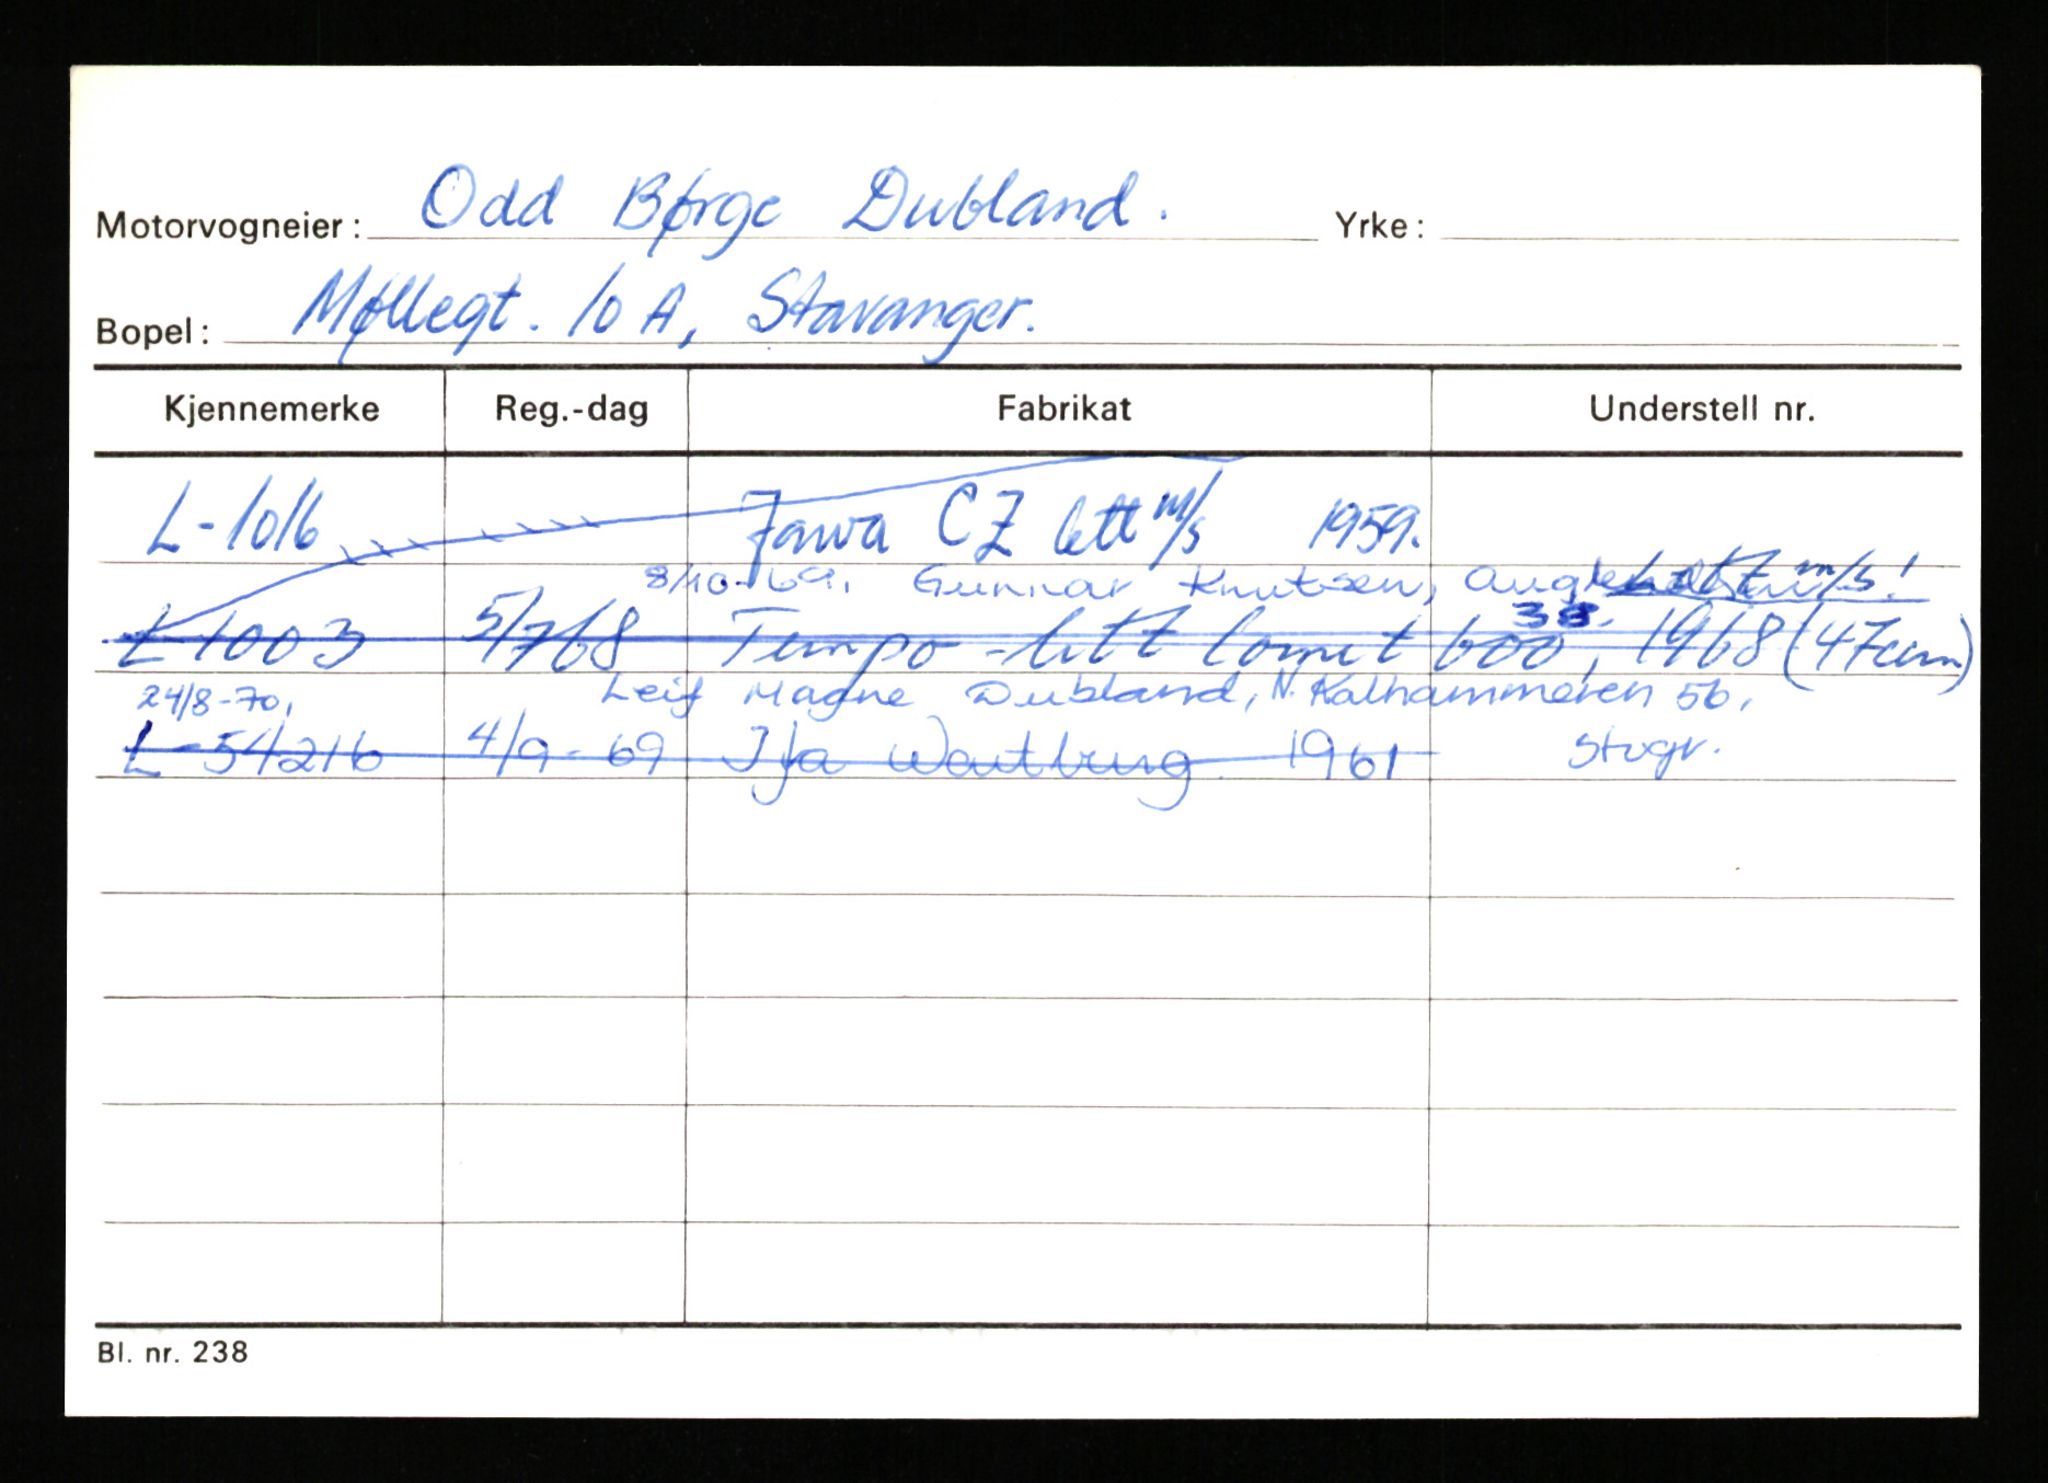 Motorvogneier: Odd Børge Dubland. Yrke:
Bopel: Møllegt. 10 A, Stavanger.
Kjennemerke Reg.-dag Fabrikat Understell nr.
L-1016 Jawa CZ lett m/s 1959.
8/10-69. Gunnar Knutsen, m/s!
38.
L 1003 5/7 68 Tempo-lett Comet 600, 1968 (47cum)
24/8-70, Leif Magne Dubland, N. Kalhammeren 56,
L-54216 4/9-69 Ifa Wartburg 1961 Stvgr.
Bl. nr. 238